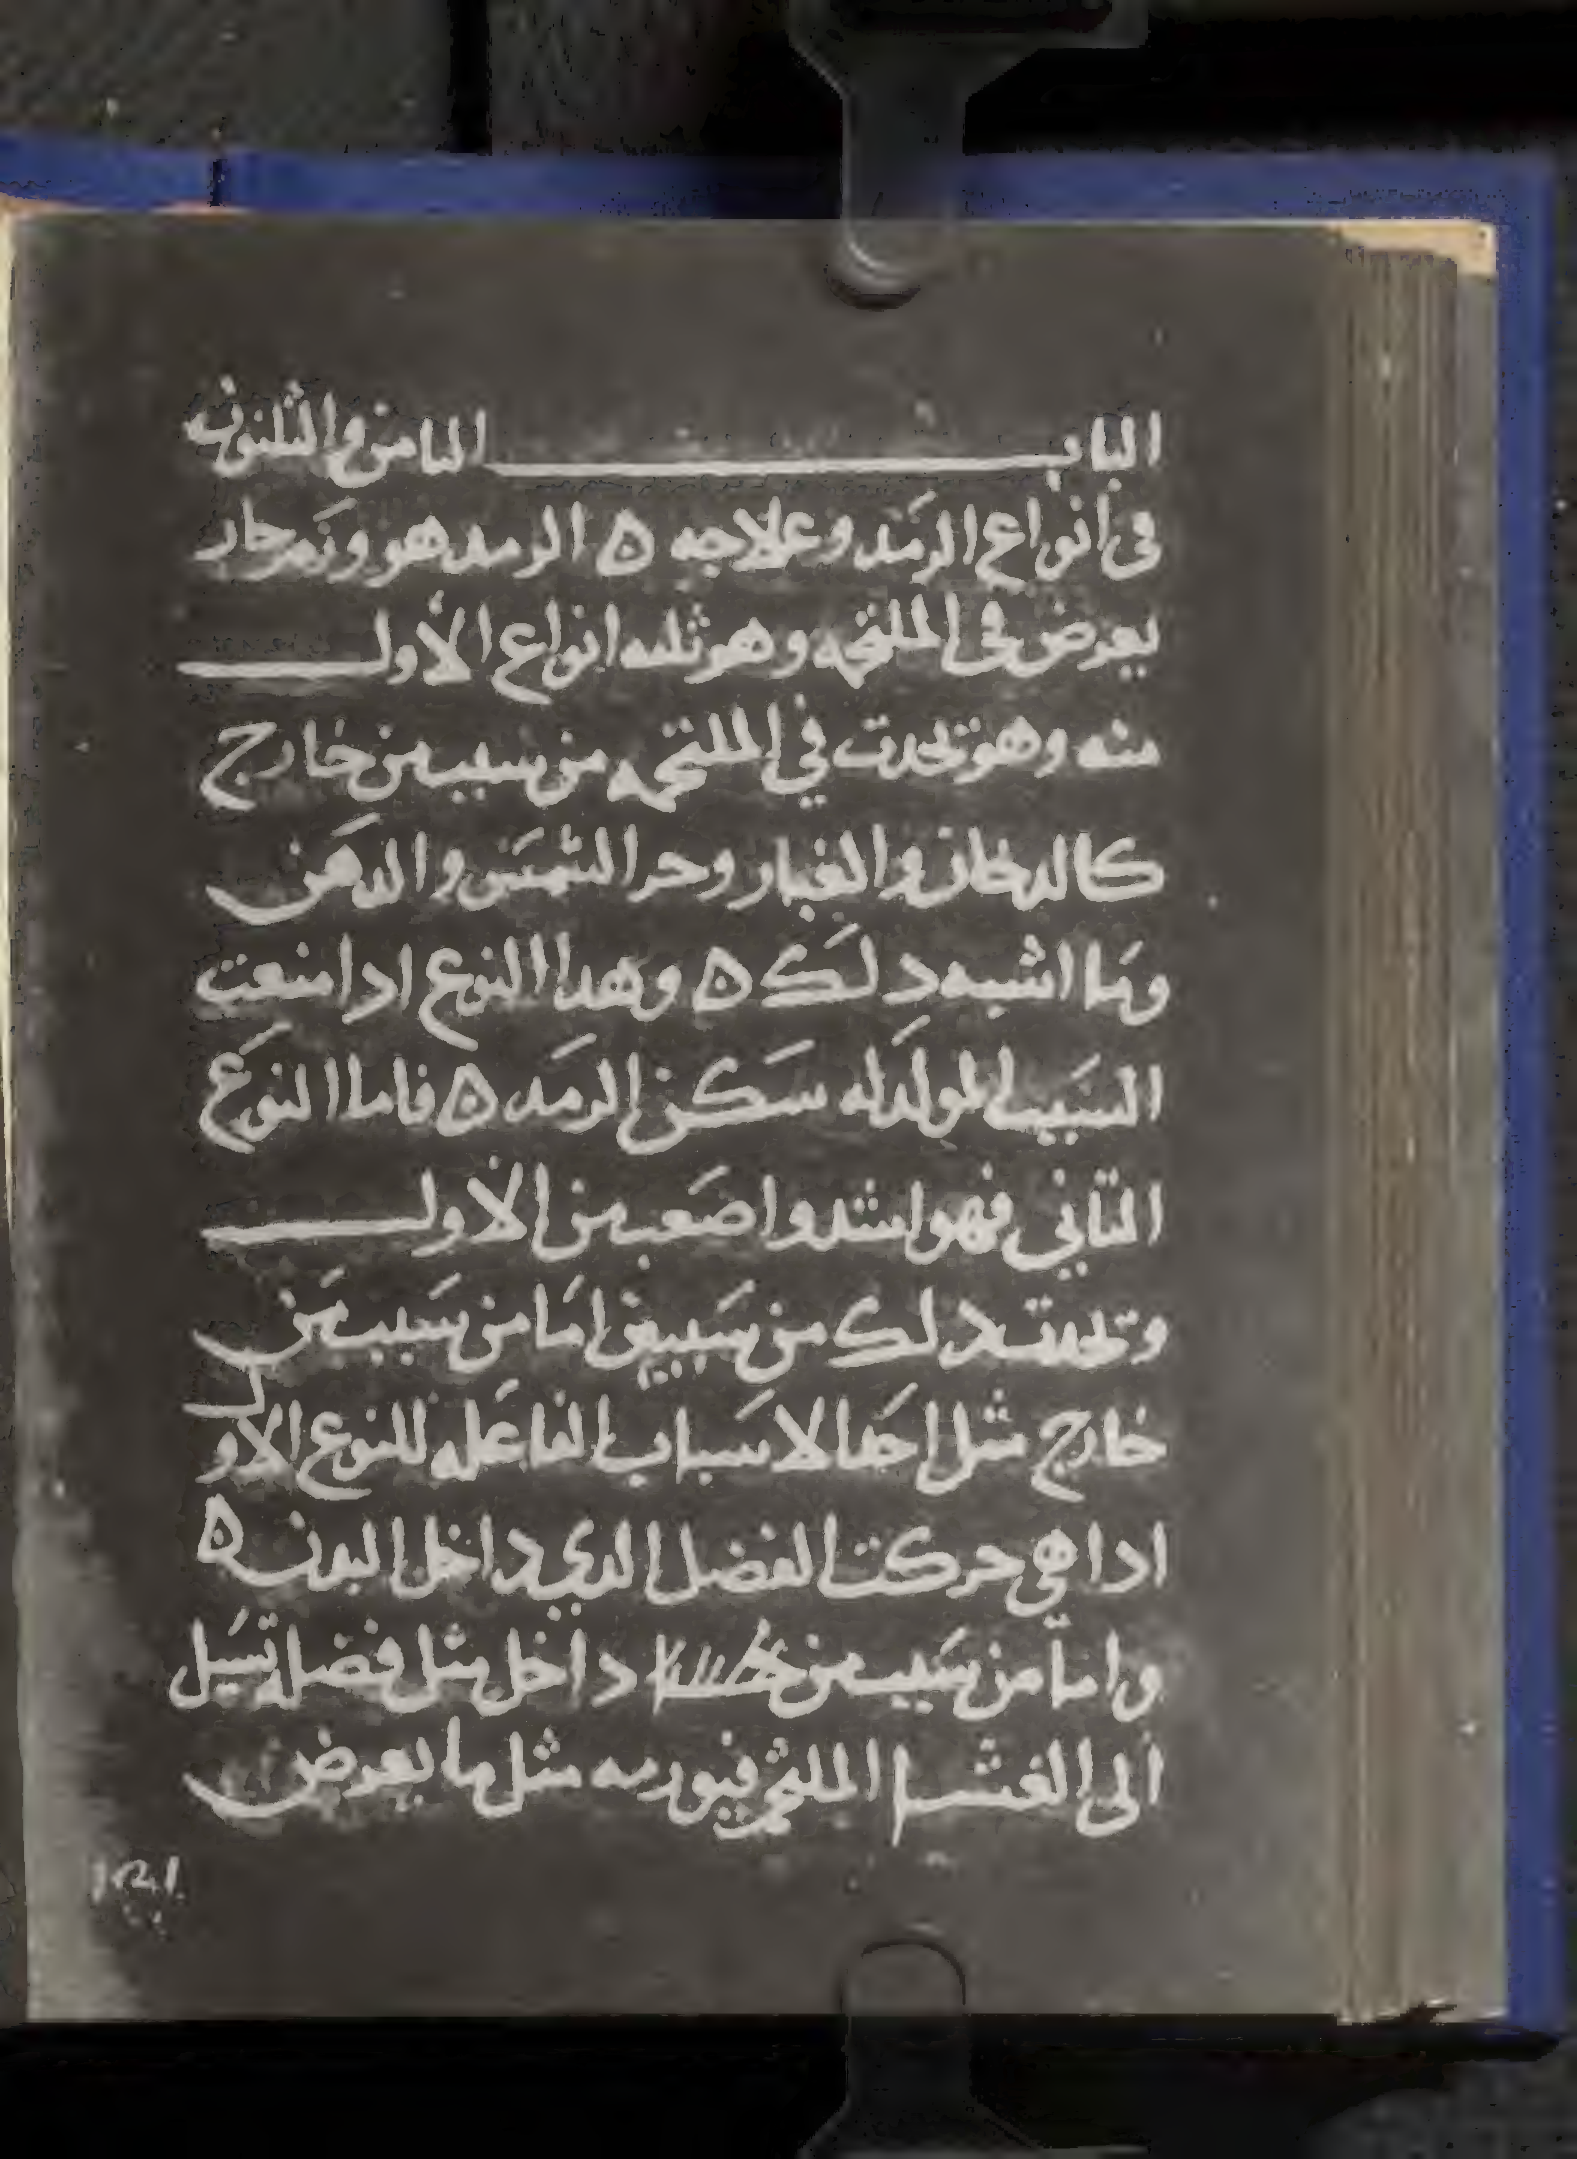 الباب الثامن والثلثون
في انواع الرمد وعلاجه ه الرمد هو ورم حار
يعرض في الملتحمه وهو ثلثه انواع الأول
منه وهو تحدت في الملتحمه من سبب من خارج
كالدخان والغبار وحر الشمس والدهن
وما اشبه دلك ه وهدا النوع ادا منعت
السبب المولد له سكن الرمد ه فاما النوع
التاني فهو اشد واصعب من الأول
وتحدت دلك من سببين اما من سبب من
خارج مثل احد الاسباب الفاعله للنوع الاول
ادا هي حركت الفضل الدي داخل البدن ه
واما من سبب من داخل مثل فضل تسيل
الى الغشا الملتحم فيورمه مثل ما يعرض